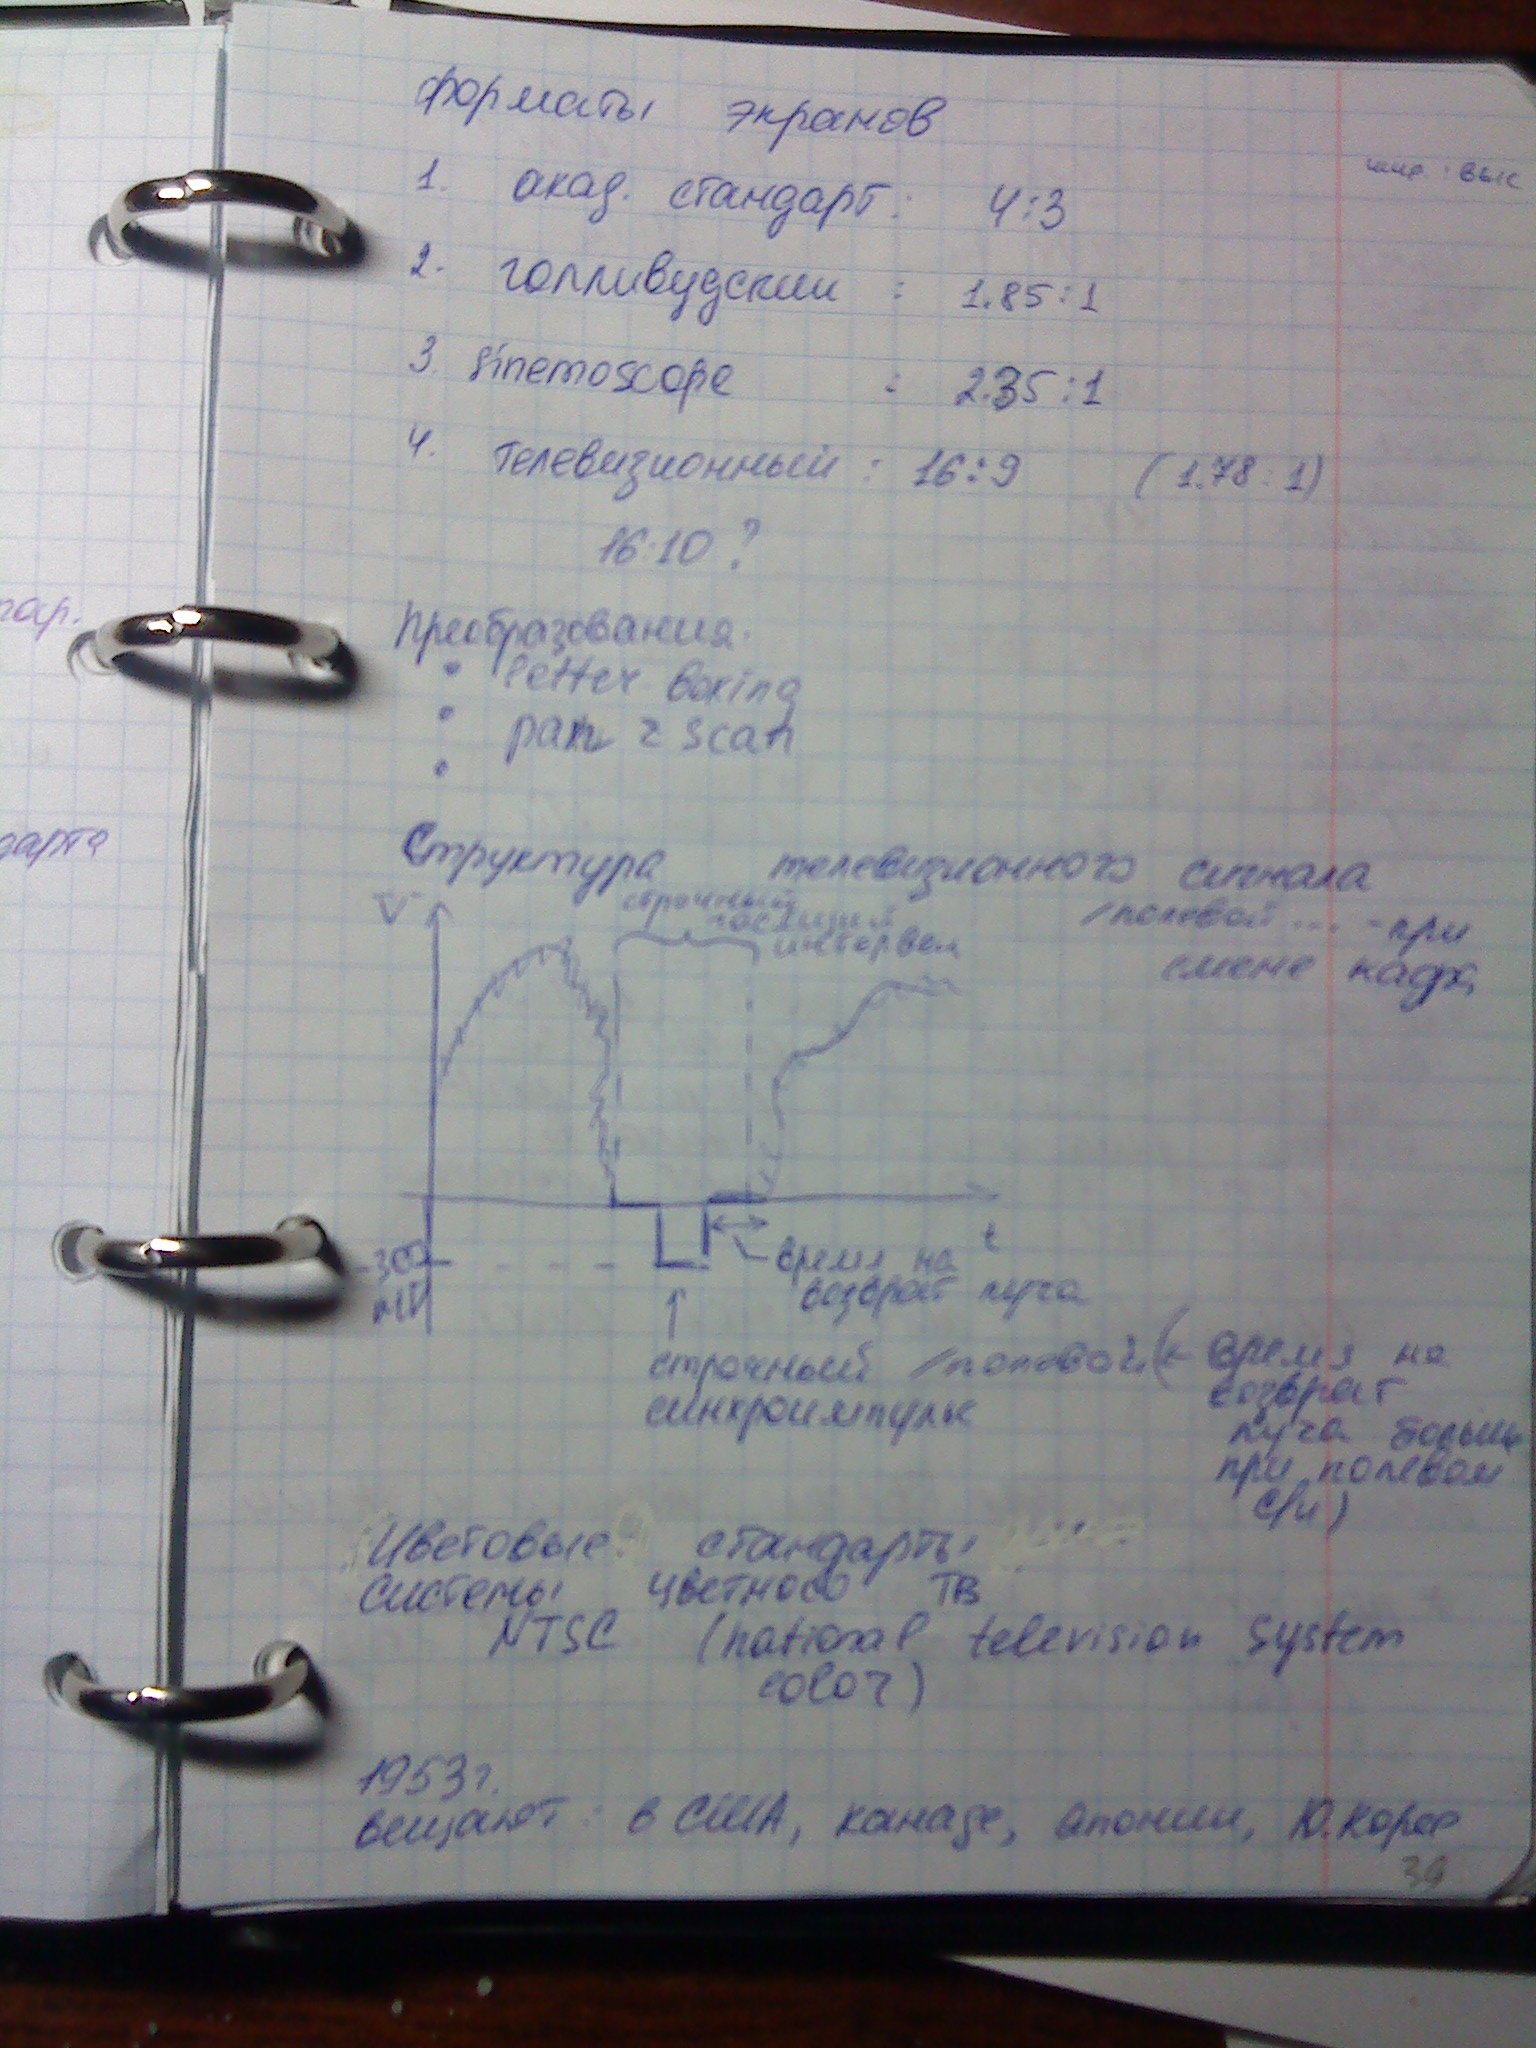 форматы экранов
шир. : выс
1. акад. стандарт: 4:3
2. голливудский : 1.85:1
3. sinemoscope : 2.35:1
4. телевизионный : 16:9 (1.78:1)
16:10 ?
Преобразования.
• letter boxing
• pan & scan
•
Структура телевизионного сигнала
V
строчный
гасящий
интервал
/полевой ... - при
смене кадра
-300
мV
t
время на
возврат луча
строчный /полевой (← время на
синхроимпульс
возврат
луча больше
при полевом
с/и)
Цветовые стандарты
системы цветного ТВ
NTSC (national television system
color)
1953г.
вещают: в США, канаде, японии, Ю.корее
39
дарта